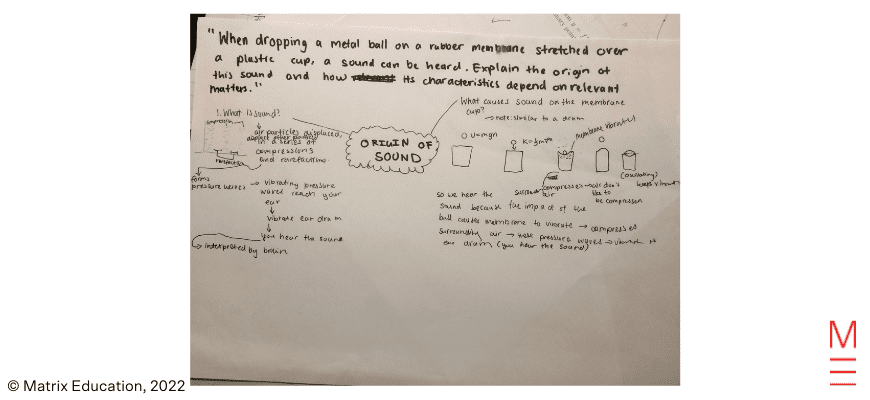 "When dropping a metal ball on a rubber membrane stretched over
a plastic cup, a sound can be heard. Explain the origin of
this sound and how its characteristics depend on relevant
matters."
1. What is sound?
air particles displaced,
in a series of
compressions
and rarefactions
forms
pressure waves → vibrating pressure
waves reach your
ear
vibrate ear drum
you hear the sound
→ interpreted by brain
ORIGIN OF
SOUND
What causes sound on the membrane
cup?
→ note: similar to a drum
U=mgh
membrane vibrates
compresses → air don't
surround air
like to
be compressed
keeps vibrating
so we hear the
sound because the impact of the
ball causes membrane to vibrate → compressed
surrounding air → these pressure waves → vibrate
ear drum (you hear the sound)
© Matrix Education, 2022
M